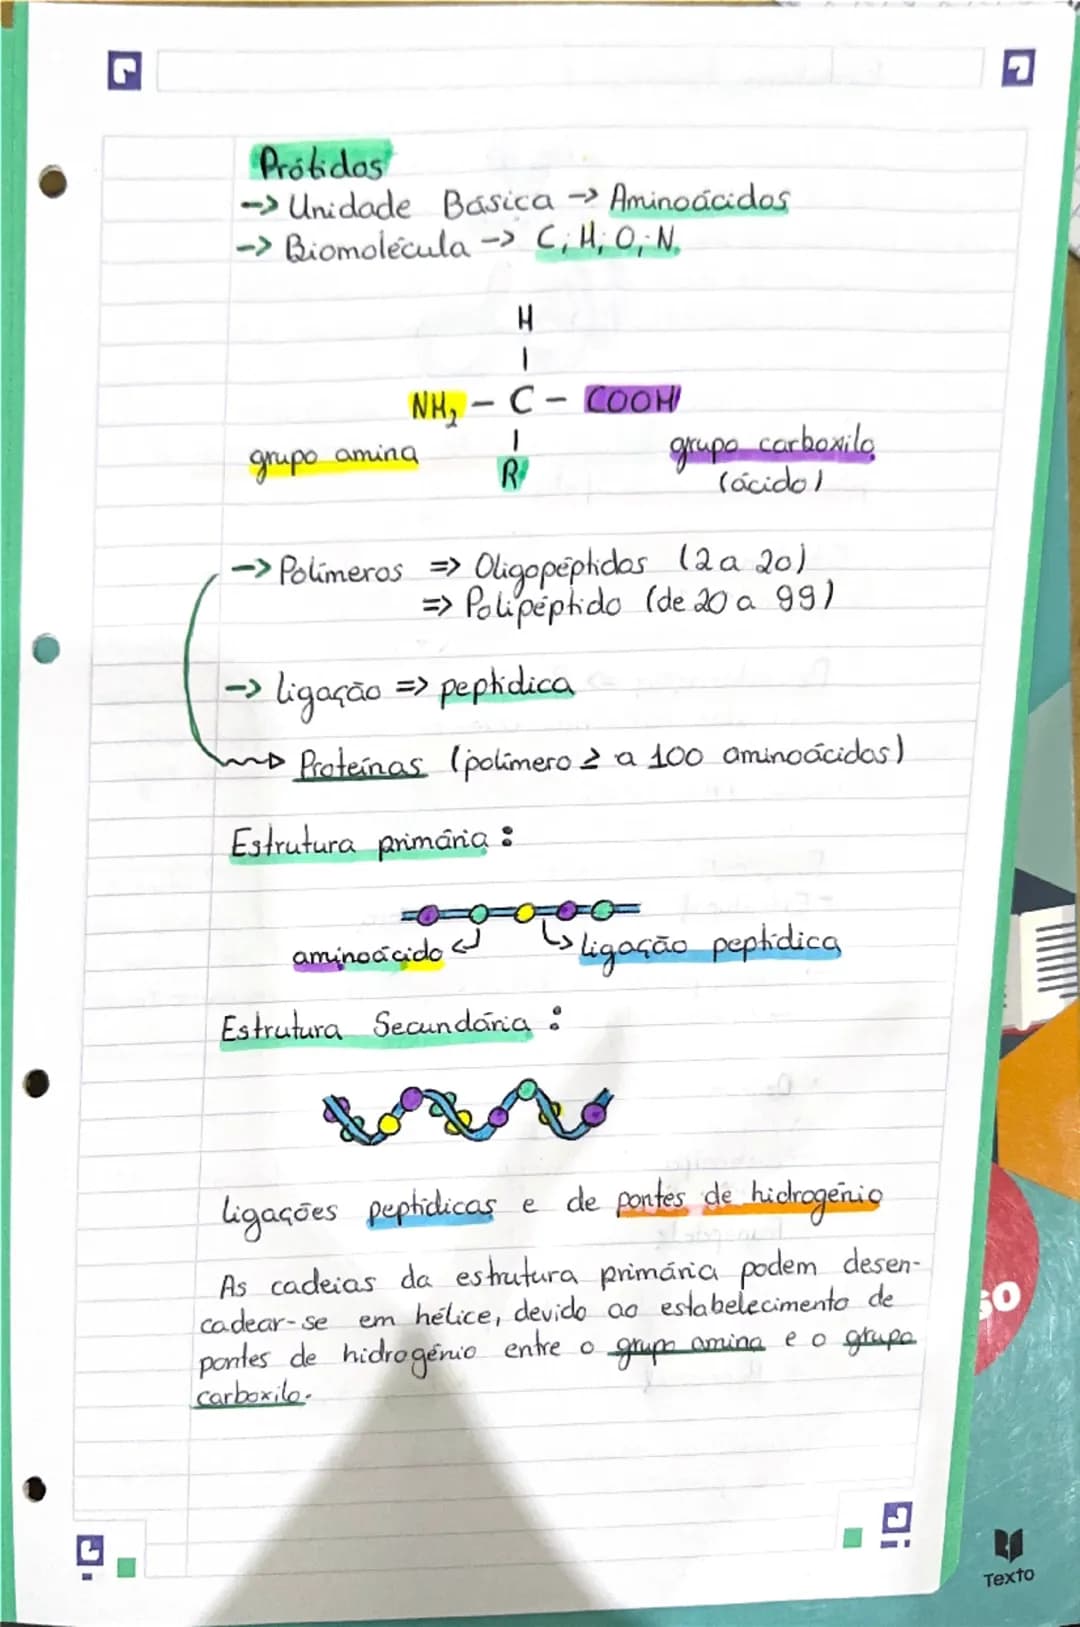 Prótidos
-> Unidade Básica -> Aminoácidos
-> Biomolécula -> C; H; O; N.
H
|
NH₂ - C - COOH
|
grupo amina R grupo carboxilo
(ácido)
-> Polímeros => Oligopéptidos (2 a 20)
=> Polipéptido (de 20 a 99)
-> ligação => peptídica
Proteínas (polímero ≥ a 100 aminoácidos)
Estrutura primária :
aminoácido ligação peptídica
Estrutura Secundária :
ligações peptídicas e de pontes de hidrogénio
As cadeias da estrutura primária podem desen-
cadear-se em hélice, devido ao estabelecimento de
pontes de hidrogénio entre o grupo amina e o grupo
carboxilo.
Texto